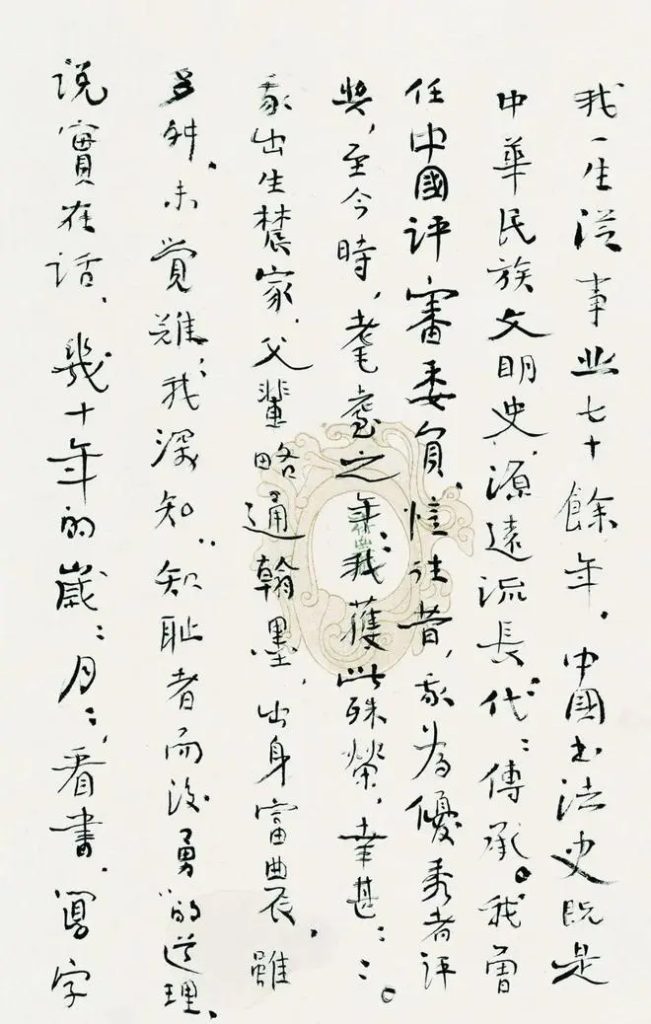 我一生從事业七十餘年，中國书法史既是
中華民族文明史，源遠流長，代：傳承。我曾
任中國評審委員，憶往昔，我為優秀者評
奖，至今時，耄耋之年：我獲此殊榮，幸甚：：。
我出生農家，父輩略通翰墨，出身富農，雖
多舛，未覚难，我深知“知耻者而後勇”的道理，
说實在话，幾十年的歲：月：，看書，寫字